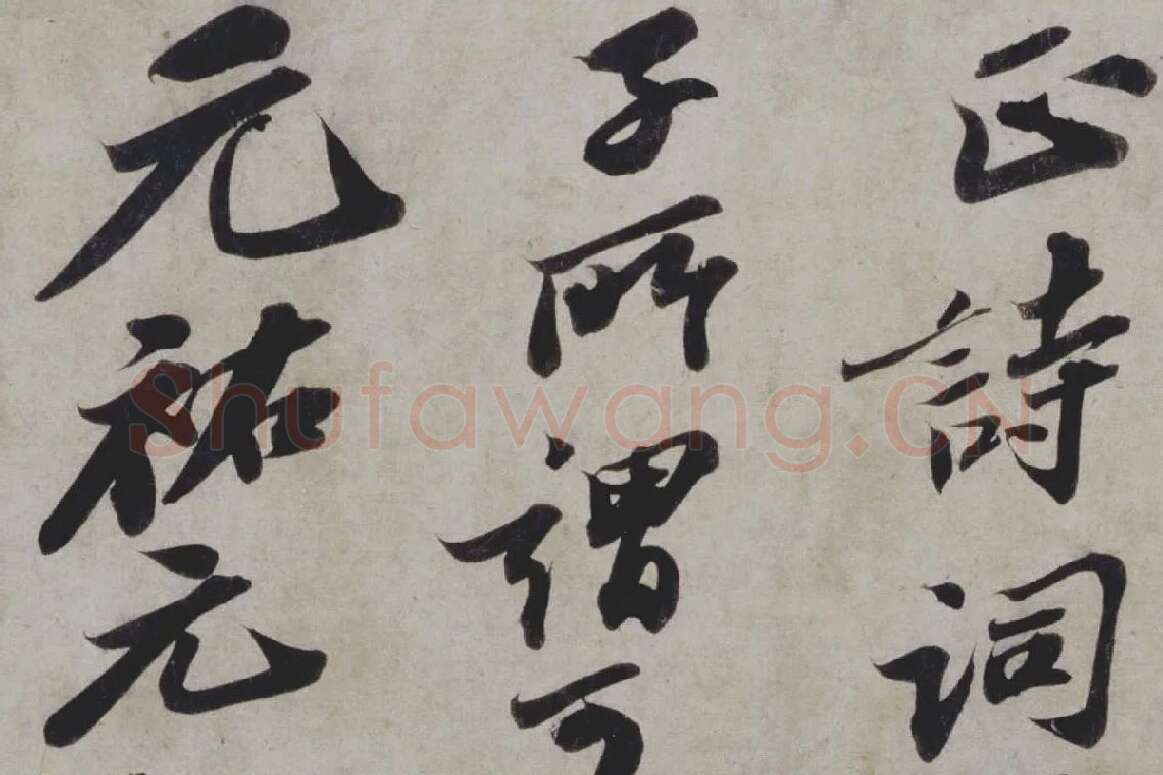 正詩詞
子所謂可
元祐元
Shufawang.CN